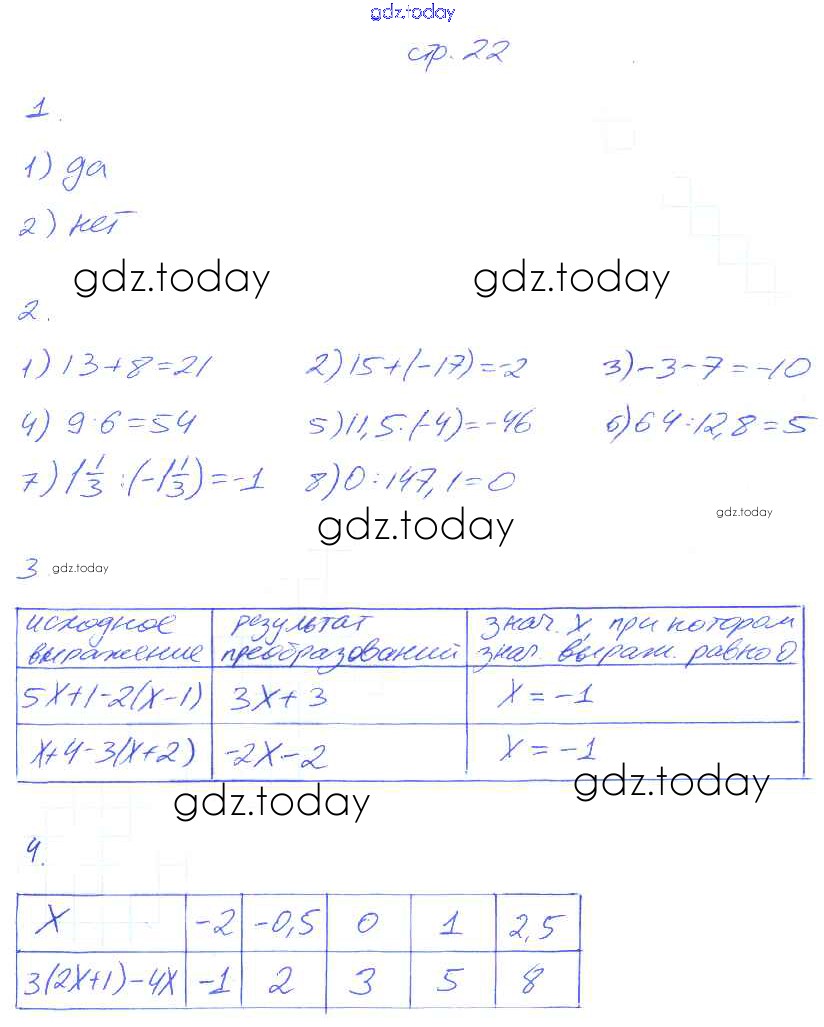 gdz.today
стр. 22
1.
1) да
2) нет
gdz.today gdz.today
2.
1) 13+8=21 2) 15+(-17)=-2 3) -3-7=-10
4) 9·6=54 5) 11,5·(-4)=-46 6) 64:12,8=5
7) 1 1/3 : (-1 1/3) = -1 8) 0:147,1=0
gdz.today gdz.today
3 gdz.today
исходное выражение | результат преобразований | знач. x, при котором знач. выраж. равно 0
5x+1-2(x-1) | 3x+3 | x=-1
x+4-3(x+2) | -2x-2 | x=-1
gdz.today gdz.today
4.
x | -2 | -0,5 | 0 | 1 | 2,5
3(2x+1)-4x | -1 | 2 | 3 | 5 | 8